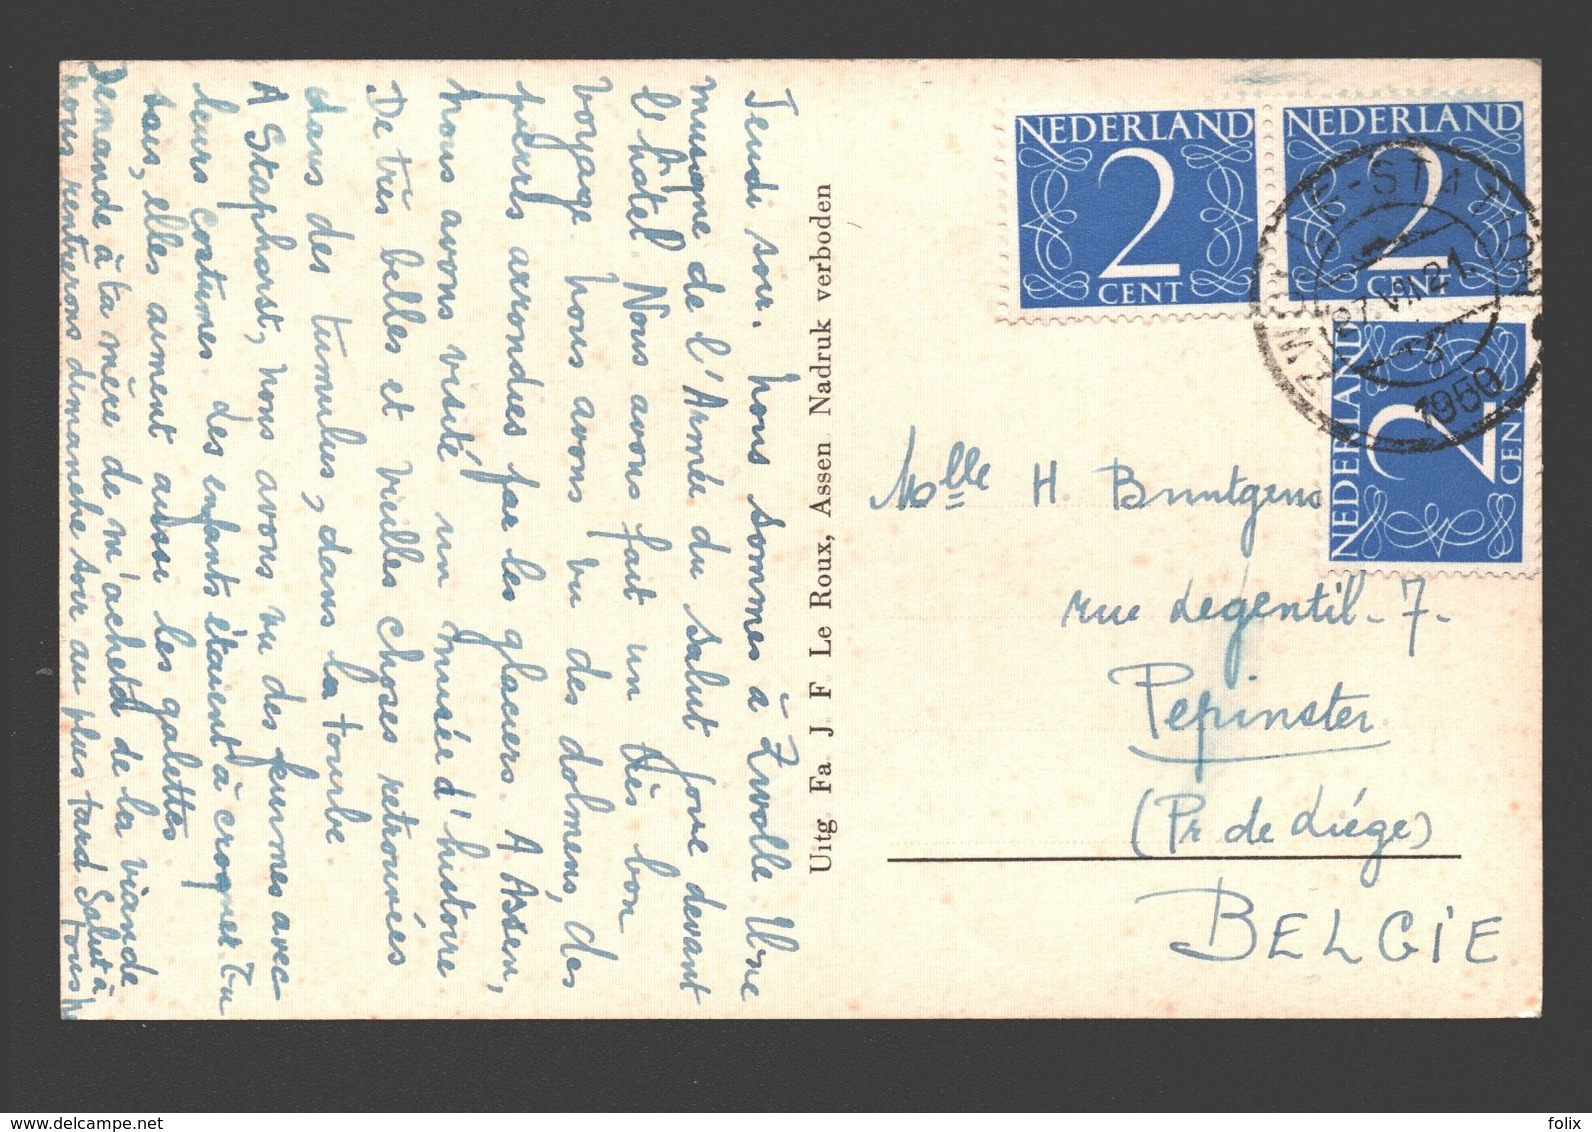 Jeudi soir. Nous sommes à Zwolle. Une
musique de l'Armée du salut joue devant
l'hôtel Nous avons fait un très bon
voyage. Nous avons vu des dolmens, des
pierres arrondies par les glaciers. A Assen,
nous avons visité un musée d'histoire.
De très belles et vieilles choses retrouvées
dans des tumulus, dans la tourbe.
A Staphorst, nous avons vu des femmes avec
leurs costumes. des enfants étaient à croquer. Tu
sais, elles aiment aussi les galettes
Demande à ta mère de m'acheter de la viande
nous rentrerons dimanche soir au plus tard Salut à tous
Uitg Fa J F Le Roux, Assen Nadruk verboden
NEDERLAND
2
CENT
NEDERLAND
2
CENT
NEDERLAND
2
CENT
ZWOLLE-STATION
27.VII 21.
1950
Mlle H. Bruntgens
rue Legentil - 7 -
Pepinster
(Pr. de Liége)
BELGIE
delcampe.net
felix